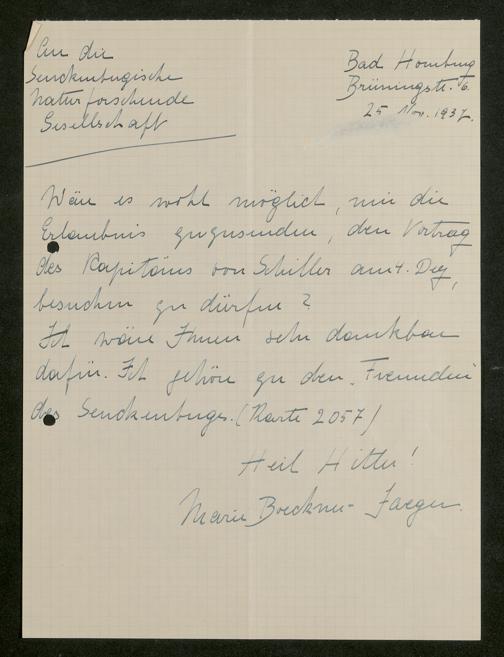 An die
Senckenbergische
Naturforschende
Gesellschaft
Bad Homburg
Brüningstr. 16.
25 Nov. 1937.
Wäre es wohl möglich, mir die
Erlaubnis zuzusenden, den Vortrag
des Kapitäns von Schiller am 4. Dez,
besuchen zu dürfen?
Ich wäre Ihnen sehr dankbar
dafür. Ich gehöre zu den Freunden
des Senckenberges. (Karte 2057)
Heil Hitler!
Marie Boeckner-Jaeger.